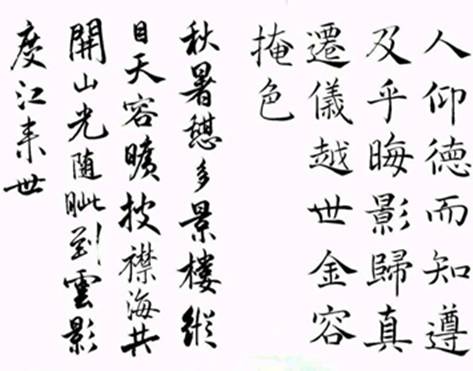 人仰德而知遵
及乎晦影歸真
遷儀越世金容
掩色
秋暑憩多景樓縱
目天容曠披襟海共
開山光隨眦到雲影
度江来世